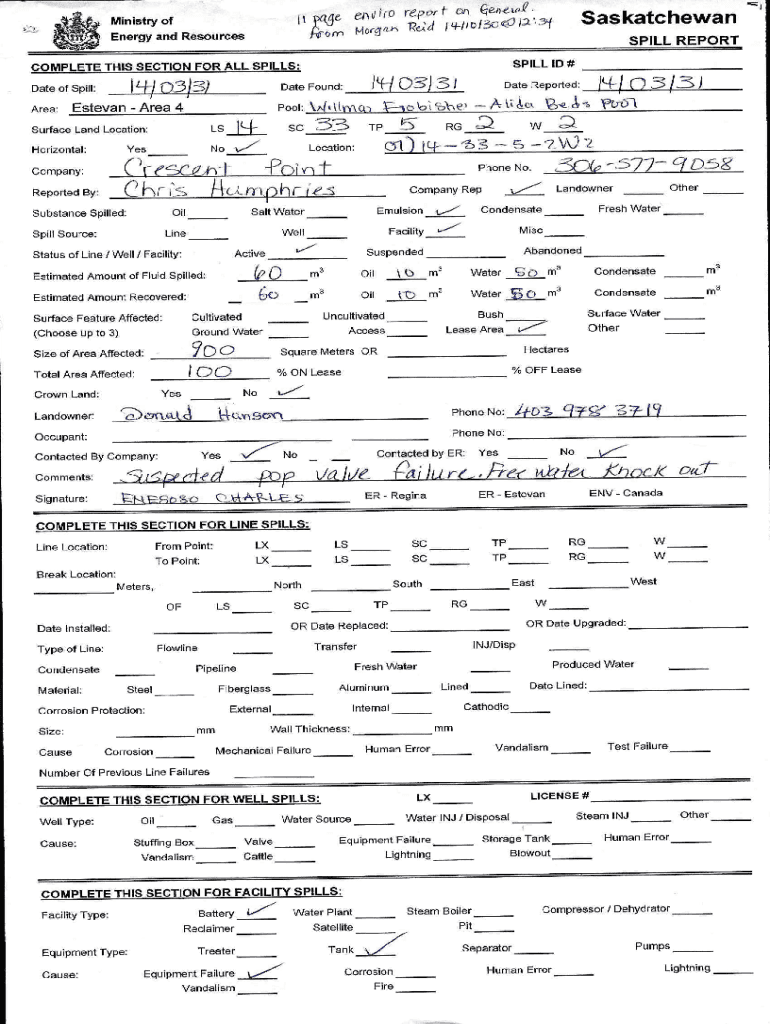 Ministry of Energy and Resources
11 page enviro report on General.
from Morgan Reid 14/10/30 @ 12:34
Saskatchewan
SPILL REPORT
COMPLETE THIS SECTION FOR ALL SPILLS: SPILL ID #
Date of Spill: 14/03/31 Date Found: 14/03/31 Date Reported: 14/03/31
Area: Estevan - Area 4 Pool: Willmar Frobisher - Alida Beds Pool
Surface Land Location: LS 14 SC 33 TP 5 RG 2 W 2
Horizontal: Yes No ✓ Location: 01/14-33-5-2W2
Company: Crescent Point Phone No. 306-577-9058
Reported By: Chris Humphries Company Rep ✓ Landowner Other
Substance Spilled: Oil Salt Water Emulsion ✓ Condensate Fresh Water
Spill Source: Line Well Facility ✓ Misc
Status of Line / Well / Facility: Active ✓ Suspended Abandoned
Estimated Amount of Fluid Spilled: 60 m³ Oil 10 m³ Water 50 m³ Condensate m³
Estimated Amount Recovered: 60 m³ Oil 10 m³ Water 50 m³ Condensate m³
Surface Feature Affected: Cultivated Uncultivated Bush Surface Water
(Choose up to 3) Ground Water Access Lease Area ✓ Other
Size of Area Affected: 900 Square Meters OR Hectares
Total Area Affected: 100 % ON Lease % OFF Lease
Crown Land: Yes No ✓
Landowner: Donald Hanson Phone No: 403 978 3719
Occupant: Phone No:
Contacted By Company: Yes ✓ No Contacted by ER: Yes No ✓
Comments: Suspected pop valve failure. Free water knock out
Signature: ENESOSO CHARLES ER - Regina ER - Estevan ENV - Canada
COMPLETE THIS SECTION FOR LINE SPILLS:
Line Location: From Point: LX LS SC TP RG W
To Point: LX LS SC TP RG W
Break Location:
Meters, North South East West
OF LS SC TP RG W
Date Installed: OR Date Replaced: OR Date Upgraded:
Type of Line: Flowline Transfer INJ/Disp
Condensate Pipeline Fresh Water Produced Water
Material: Steel Fiberglass Aluminum Lined Date Lined:
Corrosion Protection: External Internal Cathodic
Size: mm Wall Thickness: mm
Cause Corrosion Mechanical Failure Human Error Vandalism Test Failure
Number Of Previous Line Failures
COMPLETE THIS SECTION FOR WELL SPILLS: LX LICENSE #
Well Type: Oil Gas Water Source Water INJ / Disposal Steam INJ Other
Cause: Stuffing Box Valve Equipment Failure Storage Tank Human Error
Vandalism Cattle Lightning Blowout
COMPLETE THIS SECTION FOR FACILITY SPILLS:
Facility Type: Battery ✓ Water Plant Steam Boiler Compressor / Dehydrator
Reclaimer Satellite Pit
Equipment Type: Treater Tank ✓ Separator Pumps
Cause: Equipment Failure ✓ Corrosion Human Error Lightning
Vandalism Fire